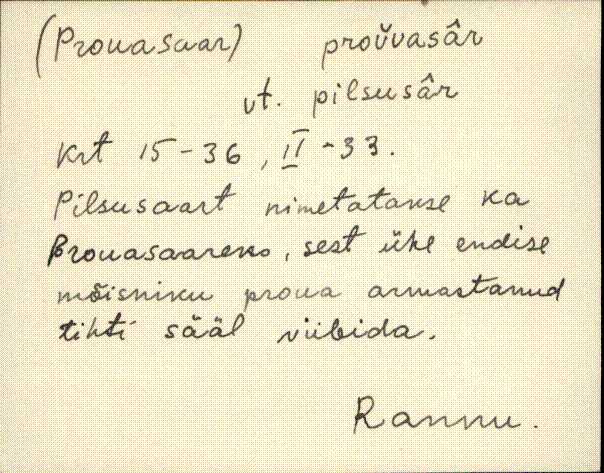 (Prouasaar) proŭvasâr
vt. pilsusâr
Krt 15-36, II-33.
Pilsusaart nimetatakse ka
Prouasaareks, sest ühe endise
mõisniku proua armastanud
tihti sääl viibida.
Rannu.